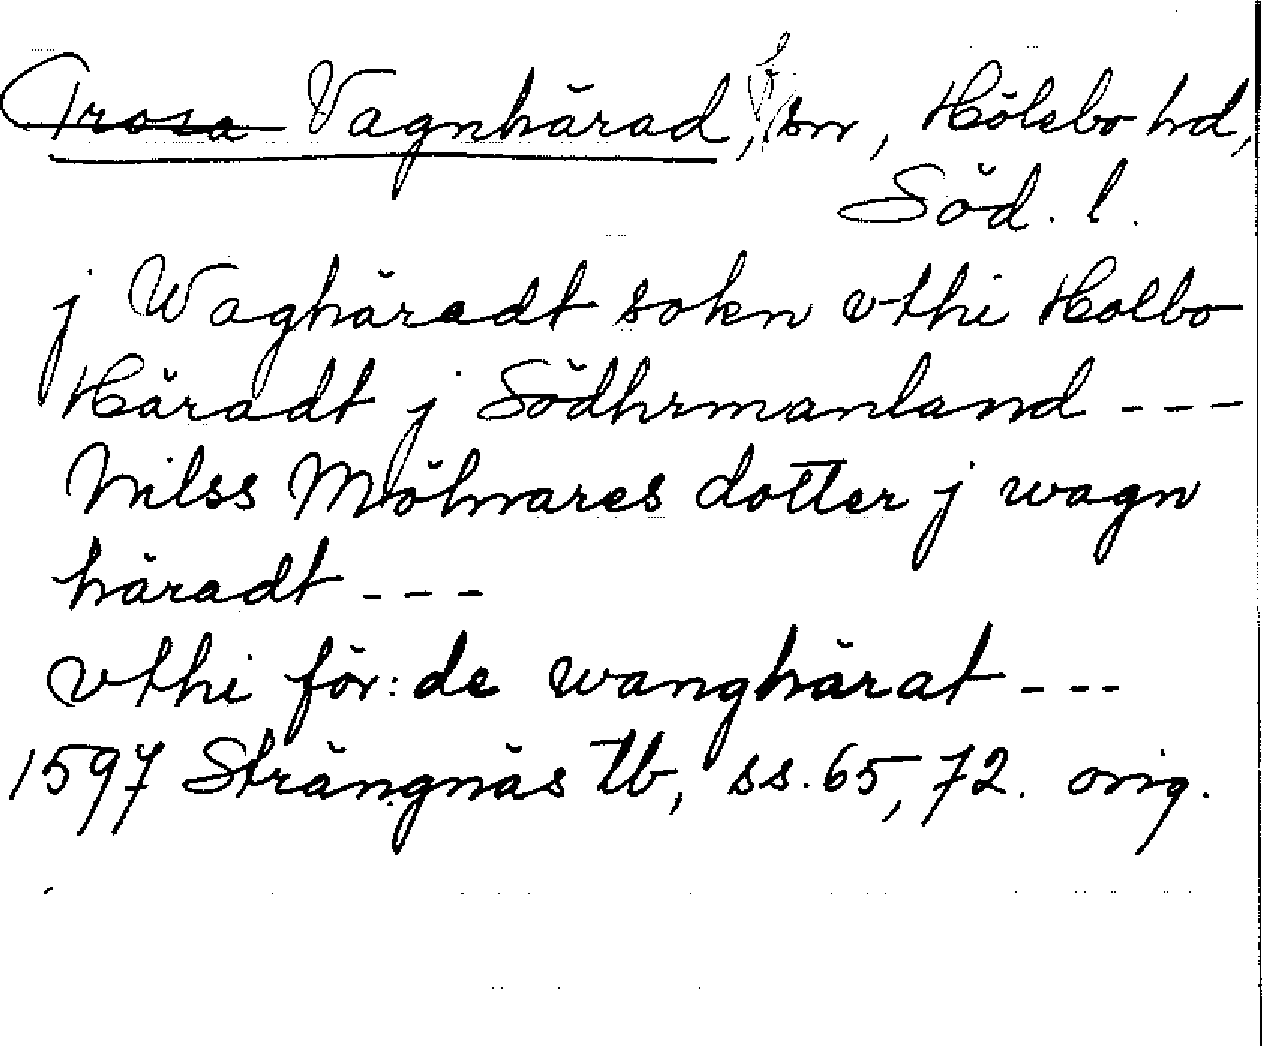 Trosa Vagnhärad, sn, Hölebo hd,
Söd. l.
j Waghäradt sokn vthi Holbo
Häradt j Södhrmanland ---
Nilss Mölnares dotter j wagn
häradt ---
vthi för:de wanghärat ---
1597 Strängnäs tb, ss. 65, 72. orig.